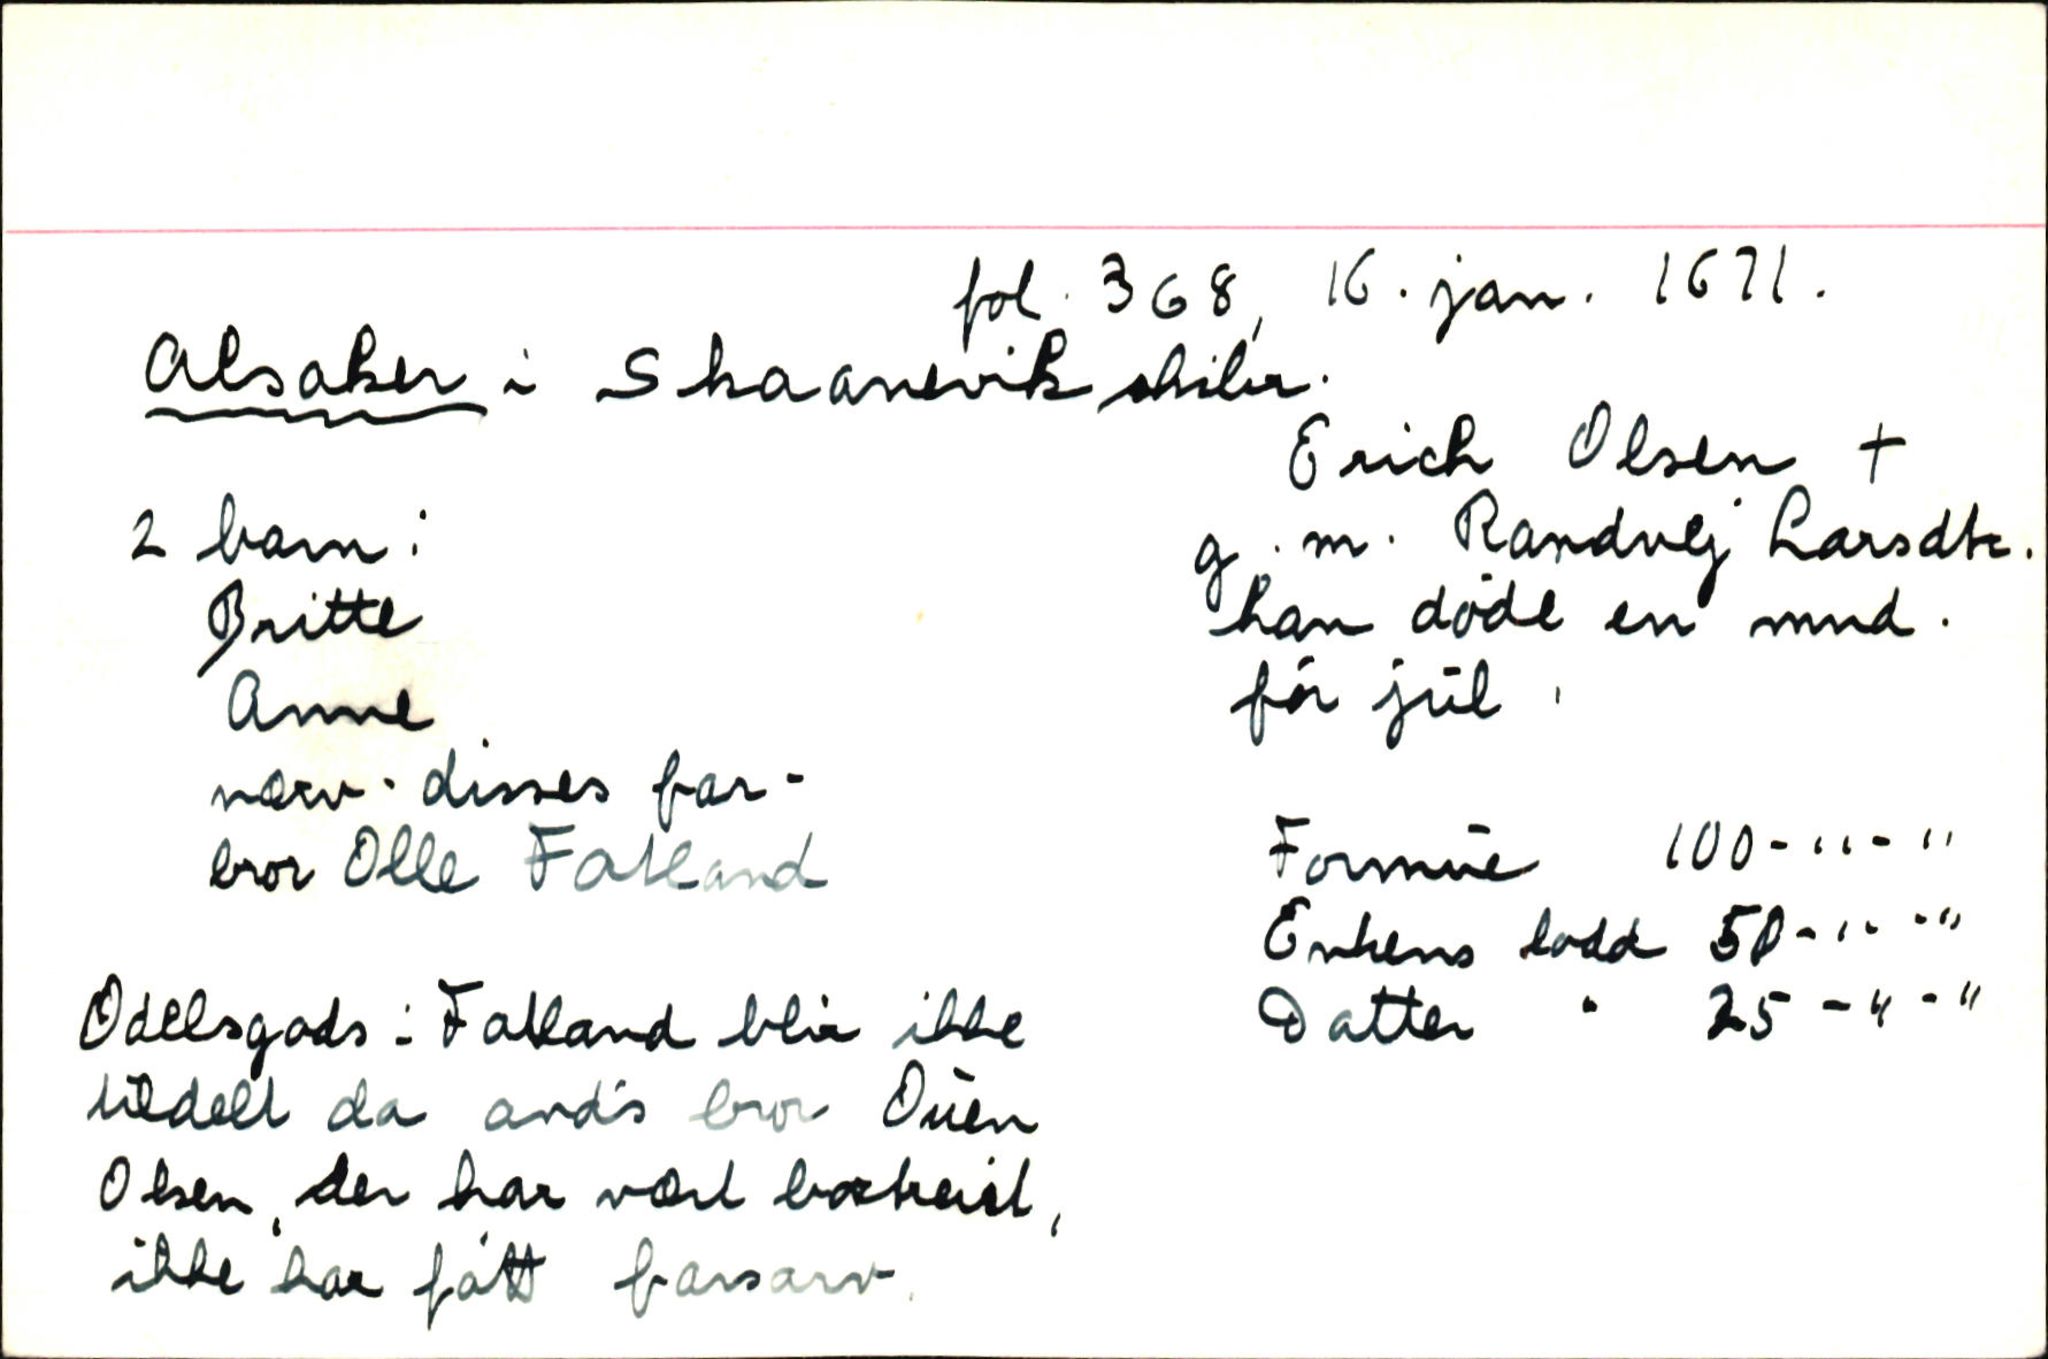 fol. 368, 16. jan. 1671.
Alsaker i Skaanevik skibr.
Erich Olsen +
g. m. Randvej Larsdtr.
han døde en mnd.
før jul.
2 barn:
Britte
Anne
nærv. disses far-
bror Olle Fatland
Formue 100-"-"
Enkens lodd 50-"-"
Datter " 25-"-"
Odelsgods i Fatland blir ikke
tildelt da avd's bror Ouen
Olsen, der har vært bortreist,
ikke har fått farsarv.